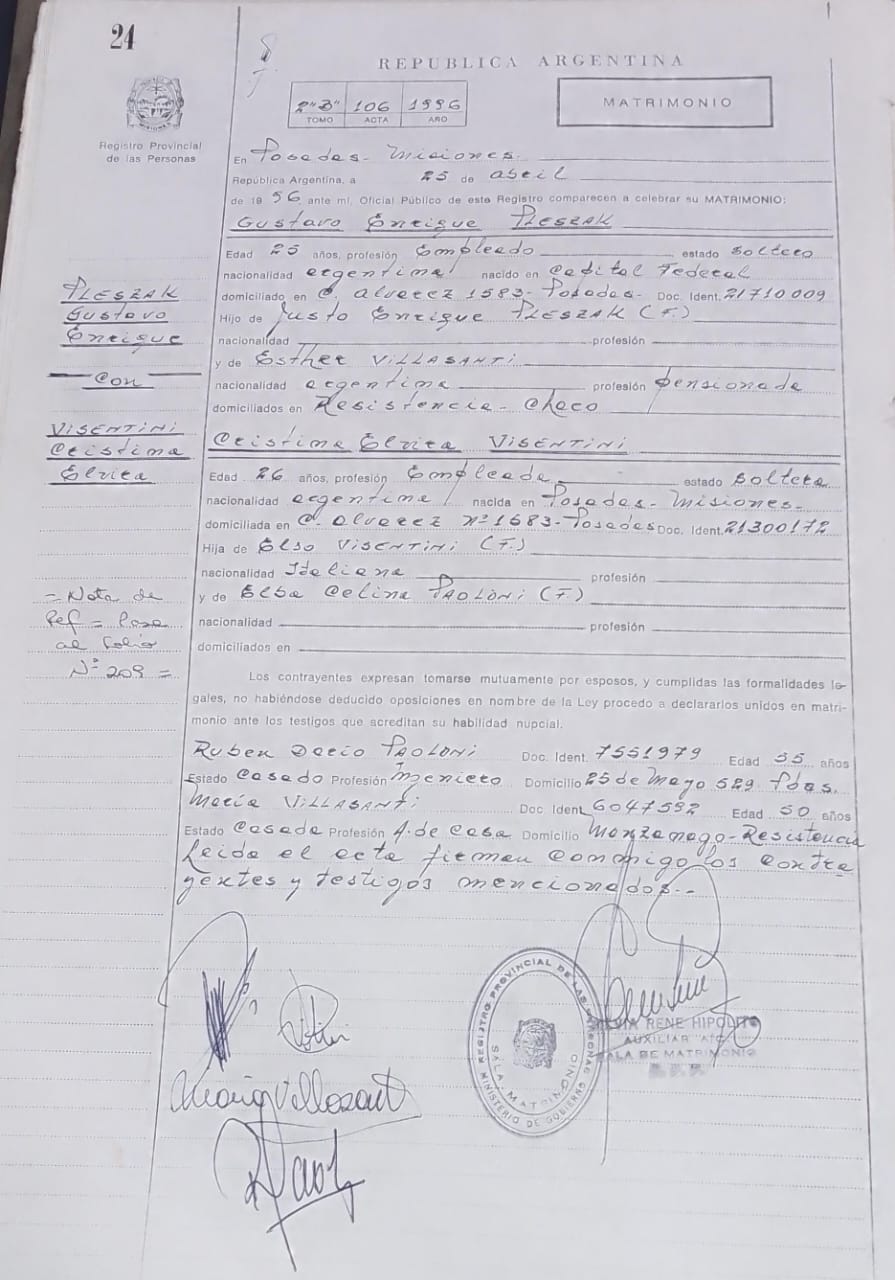 24
REPUBLICA ARGENTINA
2º"B" 106 1996
TOMO ACTA AÑO
MATRIMONIO
Registro Provincial
de las Personas
En Posadas - Misiones.
República Argentina, a 25 de abril
de 19 96 ante mí, Oficial Público de este Registro comparecen a celebrar su MATRIMONIO:
Gustavo Enrique PLESZAK
Edad 25 años, profesión Empleado estado Soltero
nacionalidad argentina nacido en Capital Federal
domiciliado en C. Alvarez 1583 - Posadas - Doc. Ident. 21710009
Hijo de Justo Enrique PLESZAK (F.)
nacionalidad profesión
y de Esther VILLASANTI
nacionalidad argentina profesión pensionada
domiciliados en Resistencia - Chaco
PLESZAK
Gustavo
Enrique
Con
VISENTINI
Cristina
Elvira
Cristina Elvira VISENTINI
Edad 26 años, profesión Empleada estado Soltera
nacionalidad argentina nacida en Posadas - Misiones -
domiciliada en C. Alvarez Nº 1583 - Posadas Doc. Ident. 21300172
Hija de Elso VISENTINI (F.)
nacionalidad Italiana profesión
y de Elba Celina PAOLONI (F.)
nacionalidad profesión
domiciliados en
= Nota de
Ref = Pasa
al Folio
Nº 209 =
Los contrayentes expresan tomarse mutuamente por esposos, y cumplidas las formalidades le-
gales, no habiéndose deducido oposiciones en nombre de la Ley procedo a declararlos unidos en matri-
monio ante los testigos que acreditan su habilidad nupcial.
Ruben Dario PAOLONI Doc. Ident. 7551979 Edad 55 años
Estado Casado Profesión Ingeniero Domicilio 25 de Mayo 529 Pdas.
María VILLASANTI Doc Ident 6047592 Edad 50 años
Estado Casada Profesión A. de Casa Domicilio - Resistencia
Leida el acta firman conmigo los contra
yentes y testigos mencionados.-
REGISTRO PROVINCIAL DE LAS PERSONAS
SALA - MATRIMONIO
MINISTERIO DE GOBIERNO
RENE HIPOLITO
AUXILIAR
SALA DE MATRIMONIO
Maria Villasanti